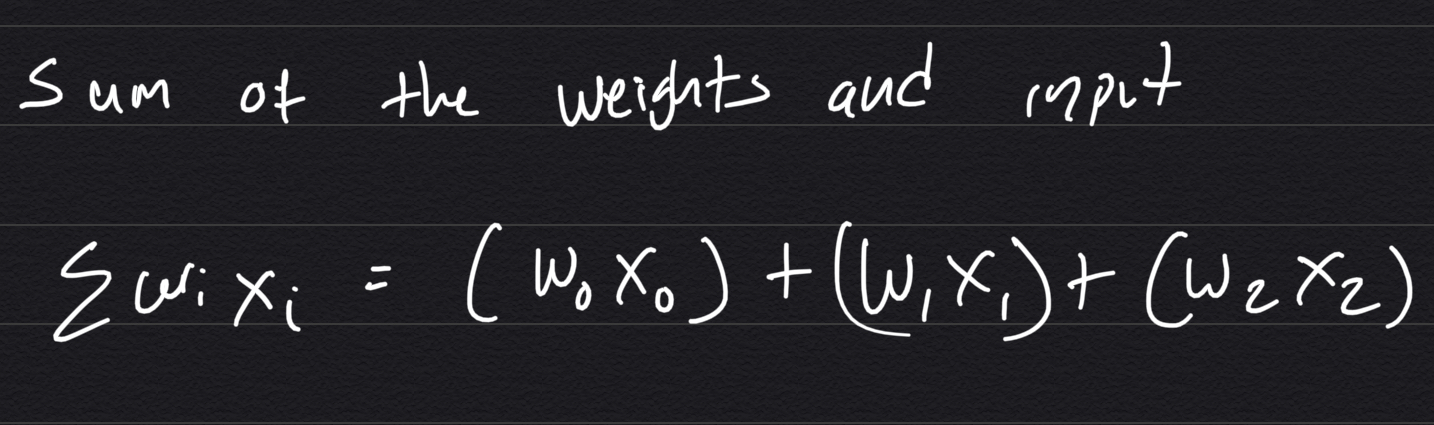 Sum of the weights and input
∑wᵢxᵢ = (w₀x₀) + (w₁x₁) + (w₂x₂)